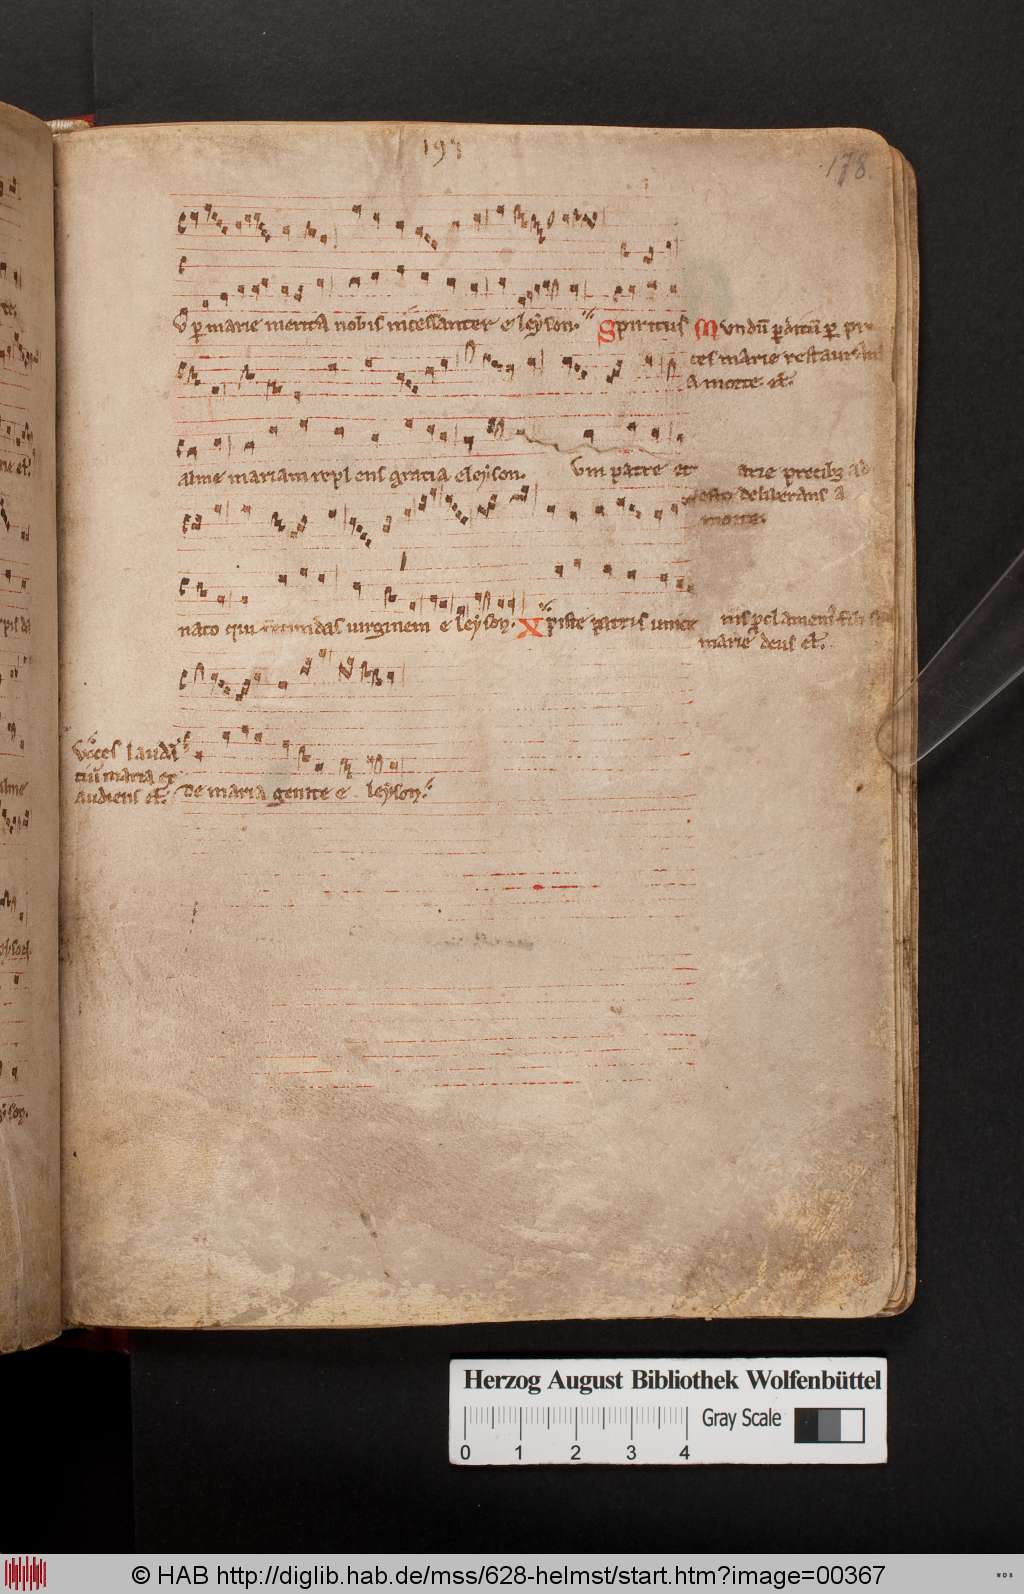 197
178.
V p marie merita nobis incessanter eleyson. Spiritus Mundū pditū p pre
ces marie restaurans
a morte et̄.
alme mariam replens gratia eleyson. Vm patre et arie precibꝫ ad
deliberans a
morte.
nato qui fecundas virginem eleyson. Xpiste patris unice nis pclamens fili
marie deus et̄.
Voces laudā
tiū maria ex
audiens et̄. de maria genite e leyson.
Herzog August Bibliothek Wolfenbüttel
Gray Scale
0 1 2 3 4
© HAB http://diglib.hab.de/mss/628-helmst/start.htm?image=00367